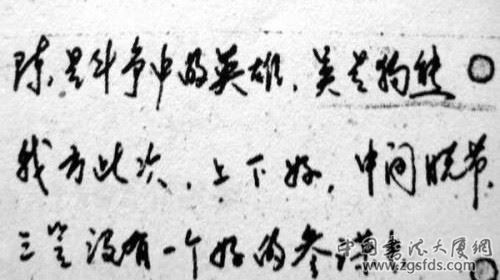 陈是斗争中的英雄、是狗熊
我方此次、上下好、中间脱节、
没有一个好的参谋
中国书法大厦网
www.zgsfds.com